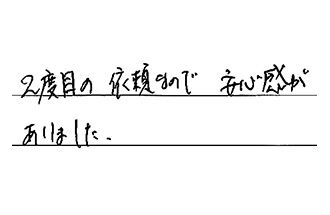 2度目の依頼なので 安心感が
ありました.